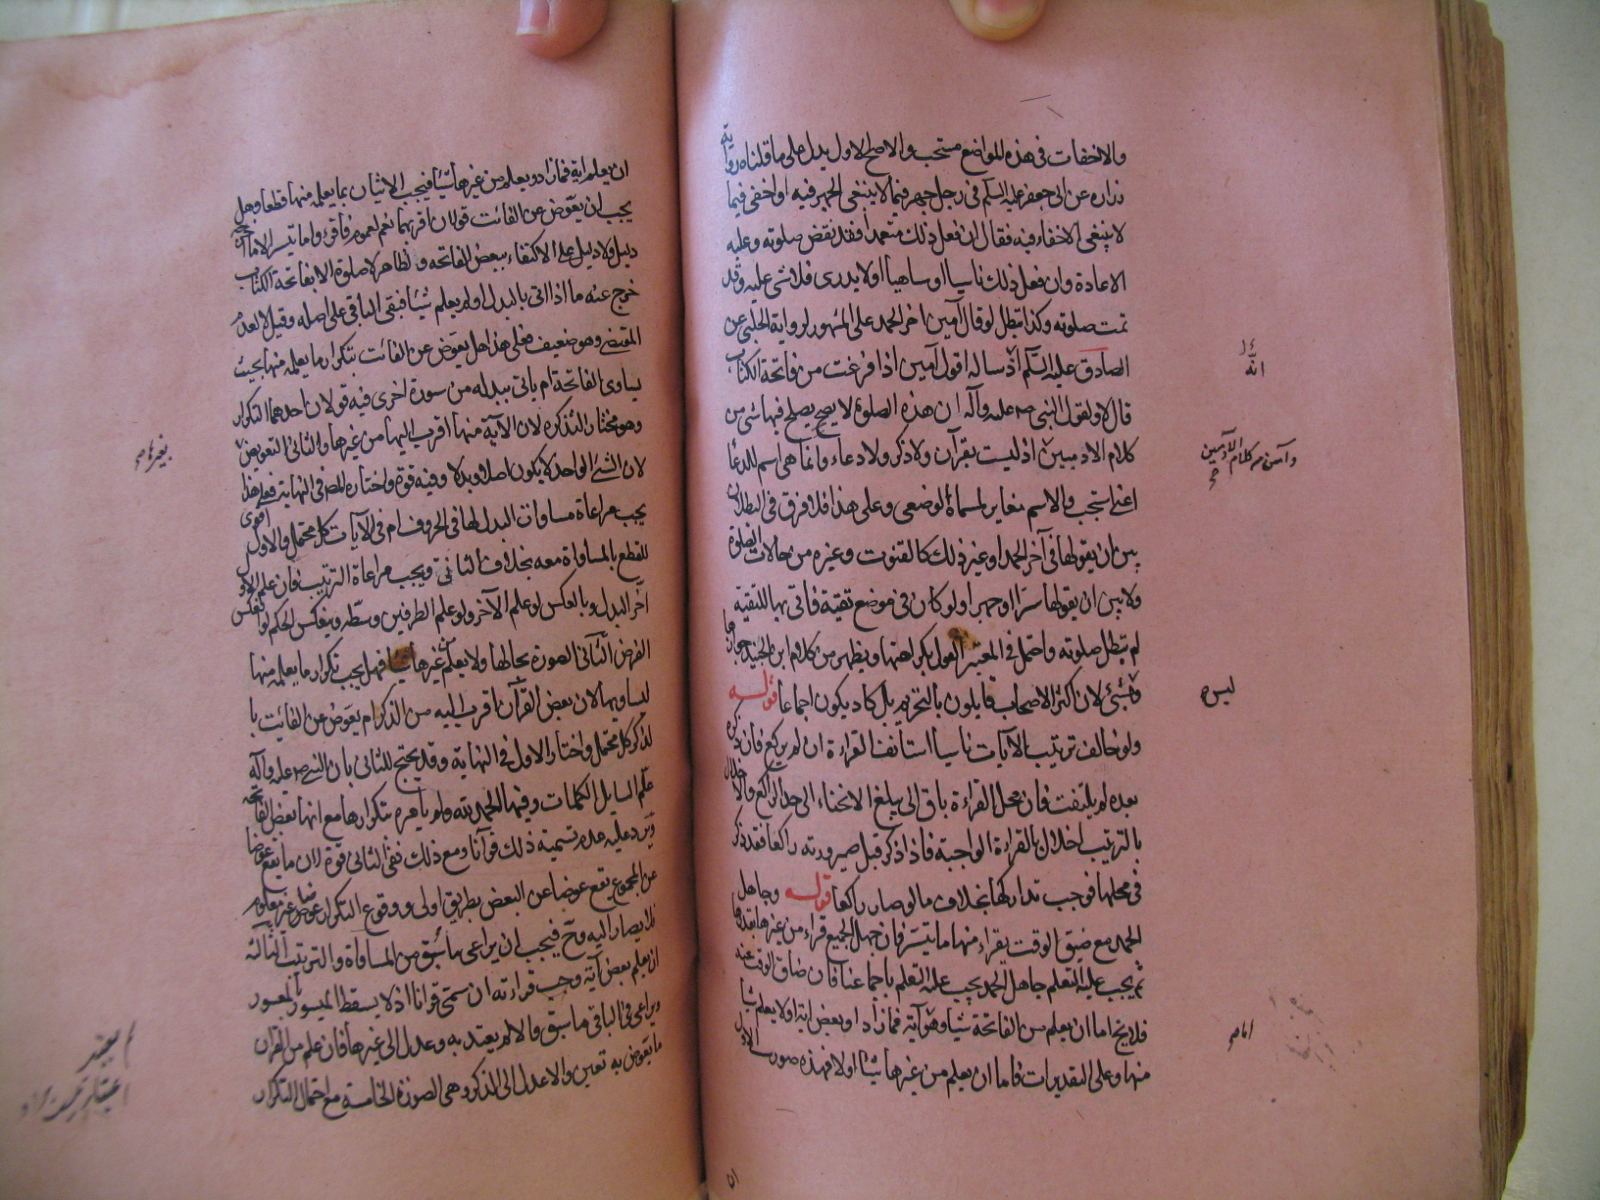 والاخفات في هذه المواضع مستحب والاصح الاول يدل على ما قلناه رواية
زراره عن ابي جعفر عليه السلم في رجل جهر فيما لا ينبغي الجهر فيه او اخفى فيما
لا ينبغي الاخفاء فيه فقال ان فعل ذلك متعمدا فقد نقض صلوته وعليه
الاعادة وان فعل ذلك ناسيا او ساهيا او لا يدري فلا شي عليه وقد
تمت صلوته وكذا تبطل لو قال آمين آخر الحمد على المشهور لرواية الحلبي عن
الصادق عليه السلم اذ ساله اقول آمين اذا فرغت من فاتحة الكتاب
قال لا ولقول النبي ص عليه وآله ان هذه الصلوة لا يصح يصلح فيها شي من
كلام الادميين اذ ليست بقرآن ولا ذكر ولا دعاء وانما هي اسم للدعا
اعني استجب والاسم مغاير لمسماة الوضعي وعلى هذا فلا فرق في البطلان
بين ان يقولها في آخر الحمد او غير ذلك كالقنوت وغيره من حالات الصلوة
ولا بين ان يقولها سرا او جهرا ولو كان في موضع تقية فاتى بها للتقية
لم تبطل صلوته واحتمل في المعتبر القول بكراهتها ويظهر من كلام ابن الجنيد جوازها
وليس بشئ لان اكثر الاصحاب قايلون بالتحريم بل كاد يكون اجماعا قوله
ولو خالف ترتيب الآيات ناسيا استانف القراءة ان لم يركع فان ذكره
بعده لم يلتفت فان محل القراءة باق الى يبلغ الانحناء الى حد الراكع والاخلال
بالترتيب اخلال بالقراءة الواجبة فاذا ذكر قبل صيرورته راكعا فقد ذكر
في محلها فوجب تداركها بخلاف ما لو صار راكعا قوله وجاهل
الحمد مع ضيق الوقت يقراء منها ما تيسر فان جهل الجميع قراء من غيرها بقدرها
ثم يجب عليه التعلم جاهل الحمد يجب عليه التعلم باجماعنا فان ضاق الوقت عنه
فلا يخ اما ان يعلم من الفاتحة شيا وهو آية فما زاد او بعض آية او لا يعلم شيا
منها وعلى التقديرات فاما ان يعلم من غيرها شيئا او لا فهذه صور الاول
الله
وآمين من كلام الآدميين
ليس
اما
ان يعلم اية فما زاد ويعلم من غيرها شيئا فيجب الاتيان بما يعلمه منها قطعا وهل
يجب ان يعوض عن الفائت قولان اقربهما نعم لعموم فاقرؤا ما تيسر الا ما اخرجه
دليل ولا دليل على الاكتفاء ببعض الفاتحه ولظاهر لا صلوة الا بفاتحة الكتاب
خرج عنه ما اذا اتى بالبدل او لم يعلم شيئا فبقي الباقي على اصله وقيل لا لعدم
المقتضي وهو ضعيف فعلى هذا هل يعوض عن الفائت بتكرار ما يعلمه منها بحيث
يساوى الفاتحة ام ياتى ببدله من سورة اخرى فيه قولان احدهما التكرار
وهو مختار التذكره لان الآية منها اقرب اليها من غيرها والثاني التعويض
لان الشئ الواحد لا يكون اصلا وبدلا وفيه قوة واختاره المص في النهاية فعلى هذا
يجب مراعاة مساوات البدل لها في الحروف ام في الآيات كل محتمل والاول اقوى
للقطع بالمساواة معه بخلاف الثاني ويجب مراعاة الترتيب فان علم الاول
اخر البدل وبالعكس لو علم الآخر ولو علم الطرفين وسطه وينعكس الحكم لو انعكس
الفرض الثاني الصورة بحالها ولا يعلم غيرها شيئا فهل يجب تكرار ما يعلمه منها
ليساويها لان بعض القرآن اقرب اليه من الذكر ام يعوض عن الفائت با
لذكر كل محتمل واختار الاول في النهاية وقد يحتج للثاني بان النبي ص عليه وآله
علم السايل الكلمات وفيها الحمد لله ولم يامره بتكرارها مع انها بعض الفاتحه
ويرد عليه عدم تسمية ذلك قرآنا ومع ذلك ففي الثاني قوة لان ما يقع عوضا
عن المجموع يقع عوضا عن البعض بطريق اولى ووقوع التكرار عوضا غير معلوم
فلا يصار اليه وح فيجب ان يراعى ما سبق من المساواة والترتيب الثالثه
ان يعلم بعض آية وجب قراءته ان سمى قرانا اذ لا يسقط الميسور بالمعسور
ويراعى في الباقي ما سبق والا لم يعتد به وعدل الى غيرها فان علم من القران
ما يعوض به تعين والا عدل الى الذكر وهي الصورة الخامسه مع احتمال التكرار
بغيرها
٥١